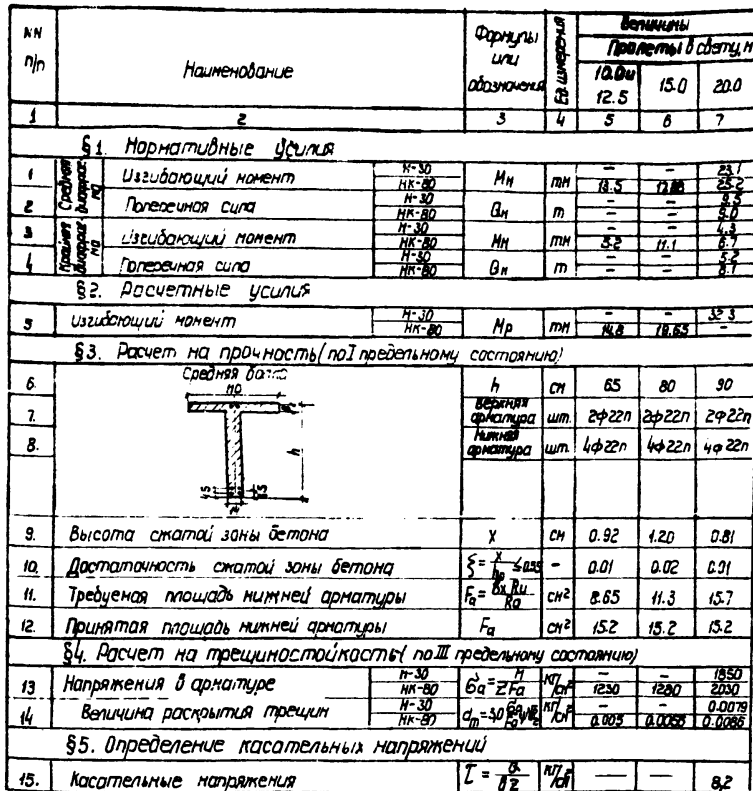 НН п/п Наименование Формулы или обозначения Ед. измерения Величины
Пролеты в свету, м
10.0 и 12.5 15.0 20.0
1 2 3 4 5 6 7
§1. Нормативные усилия
1 Средняя диафрагма Изгибающий момент Н-30 Мн тм — — 23.1
НК-80 25.2
2 Поперечная сила Н-30 Qн т — — 9.5
НК-80 — — 9.0
3 Крайняя диафрагма Изгибающий момент Н-30 Мн тм — — 4.3
НК-80 5.2 11.1 6.7
4 Поперечная сила Н-30 Qн т — — 5.2
НК-80 — — 8.1
§2. Расчетные усилия
5 Изгибающий момент Н-30 Мр тм — — 32.3
НК-80 14.8 19.65 —
§3. Расчет на прочность (по I предельному состоянию)
6. Средняя балка h см 65 80 90
110
7. верхняя арматура шт. 2ф22п 2ф22п 2ф22п
8. нижняя арматура шт. 4ф22п 4ф22п 4ф22п
h
9. Высота сжатой зоны бетона X см 0.92 1.20 0.81
10. Достаточность сжатой зоны бетона ξ = X/h₀ ≤ 0.55 - 0.01 0.02 0.01
11. Требуемая площадь нижней арматуры Fа = вx Rи/Rа см² 8.65 11.3 15.7
12. Принятая площадь нижней арматуры Fа см² 15.2 15.2 15.2
§4. Расчет на трещиностойкость (по III предельному состоянию)
13 Напряжения в арматуре Н-30 ба = М/ZFа кг/см² — — 1850
НК-80 1230 1280 2030
14 Величина раскрытия трещин Н-30 кг/см² — — 0.0079
НК-80 0.005 0.0055 0.0086
§5. Определение касательных напряжений
15. Касательные напряжения τ = Q/вz кг/см² — — 8,2